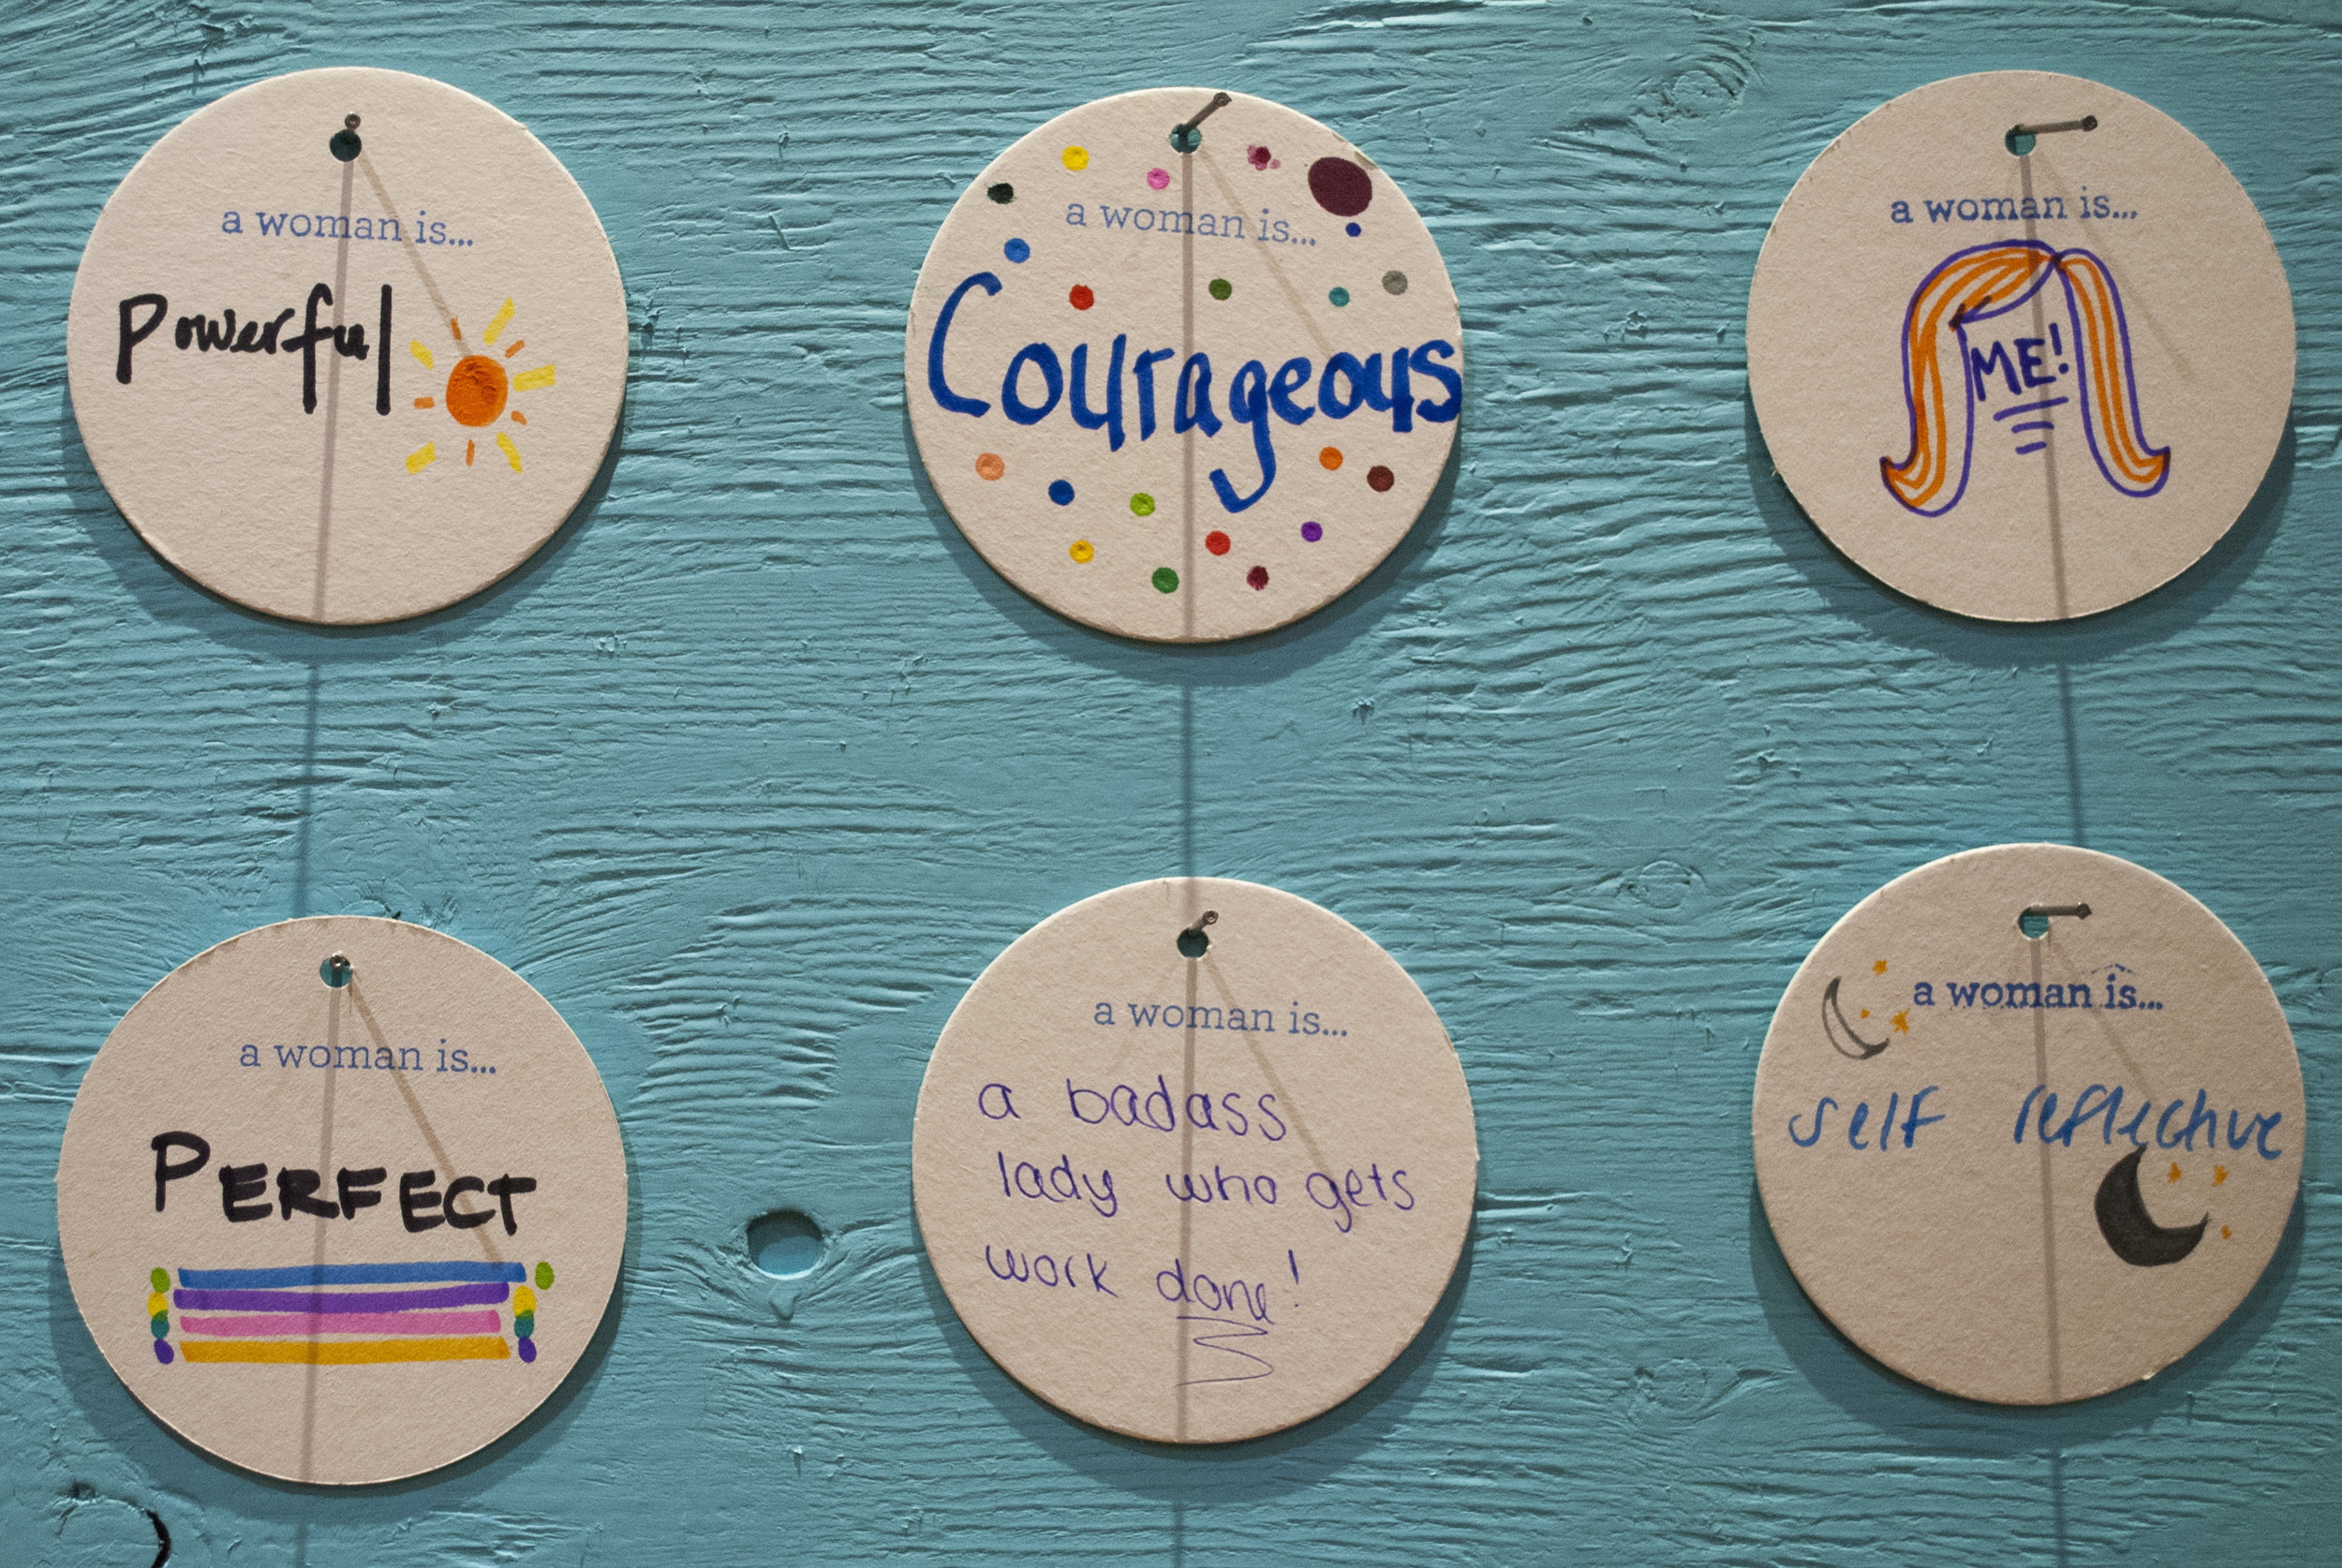 a woman is...
Powerful
a woman is...
Courageous
a woman is...
ME!
a woman is...
PERFECT
a woman is...
a badass
lady who gets
work done!
a woman is...
self reflective